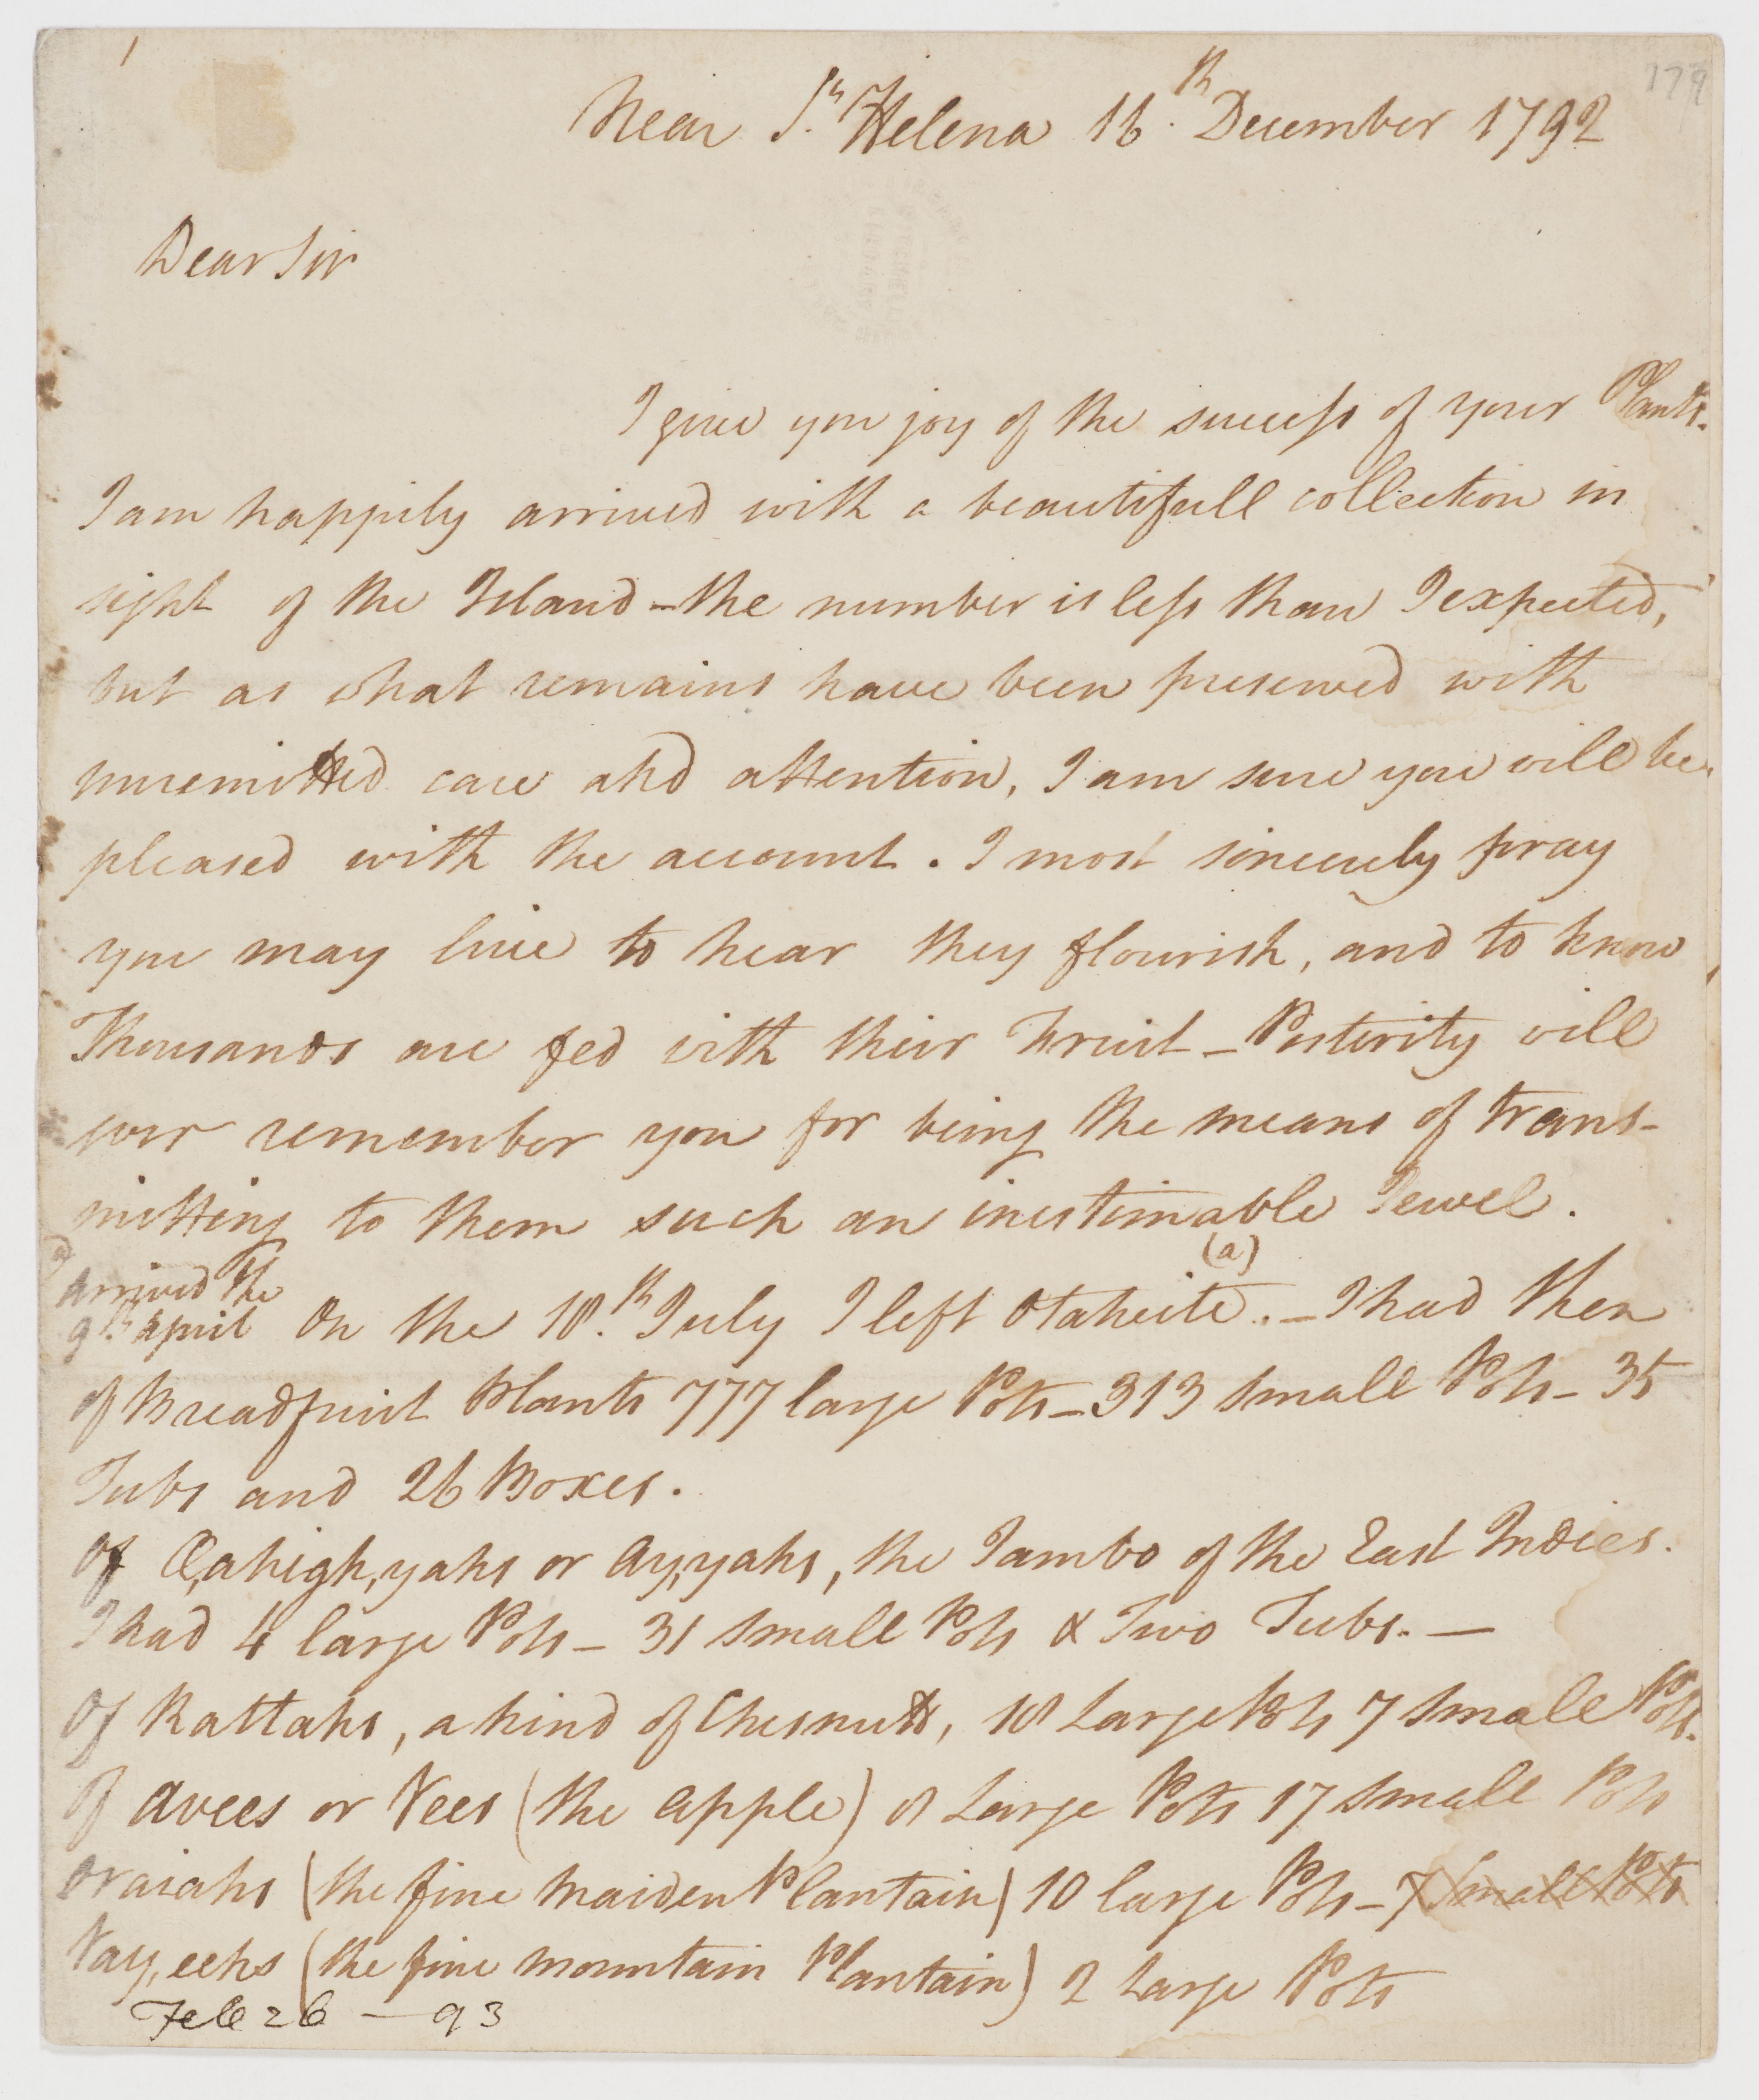 1
179
Near St. Helena 16th. December 1792
Dear Sir
I give you joy of the success of your Plants.
I am happily arrived with a beautifull collection in
sight of the Island - the number is less than I expected,
but as what remains have been preserved with
unremitted care and attention, I am sure you will be
pleased with the account. I most sincerely pray
you may live to hear they flourish, and to know
Thousands are fed with their Fruit - Posterity will
ever remember you for being the means of trans-
mitting to them such an inestimable Jewel.
(a)
arrived the
9th April
On the 18th. July I left Otaheite (a). - I had then
of Breadfruit Plants 777 large Pots - 313 small Pots - 35
Tubs and 26 Boxes.
Of Eahigh,yahs or Ay,yahs, the Jambo of the East Indies.
I had 4 large Pots - 31 small Pots & Two Tubs. -
Of Rattahs, a kind of Chesnutt, 18 Large Pots 7 small Pots.
Of Avees or Vees (the apple) 8 Large Pots 17 small Pots
Oraiahs (the fine maiden Plantain) 10 large Pots - 7 small Pots
Vay,eehs (the fine mountain Plantain) 2 large Pots
Feb 26 - 93